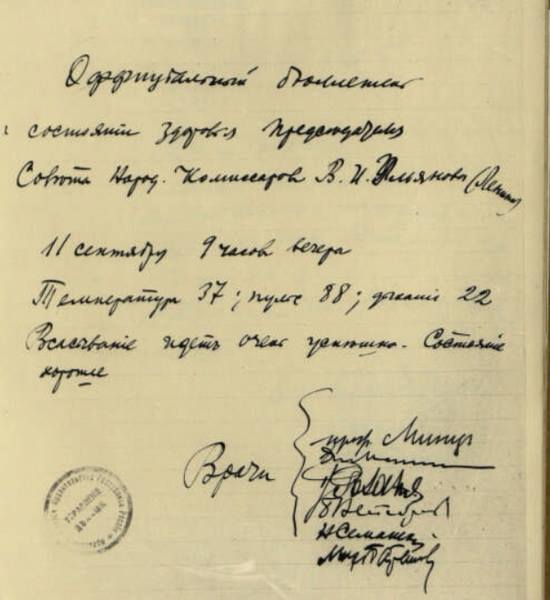 Оффицiальный бюллетень
состоянiи здоровья Предсѣдателя
Совѣта Народ. Комиссаров В. И. Ульянова (Ленина)
11 сентября 9 часов вечера
Температура 37; пульс 88; дыханiе 22
Всасыванiе идетъ очень успѣшно. Состоянiе
хорошее
Врачи
проф. Минц
Н Семашко